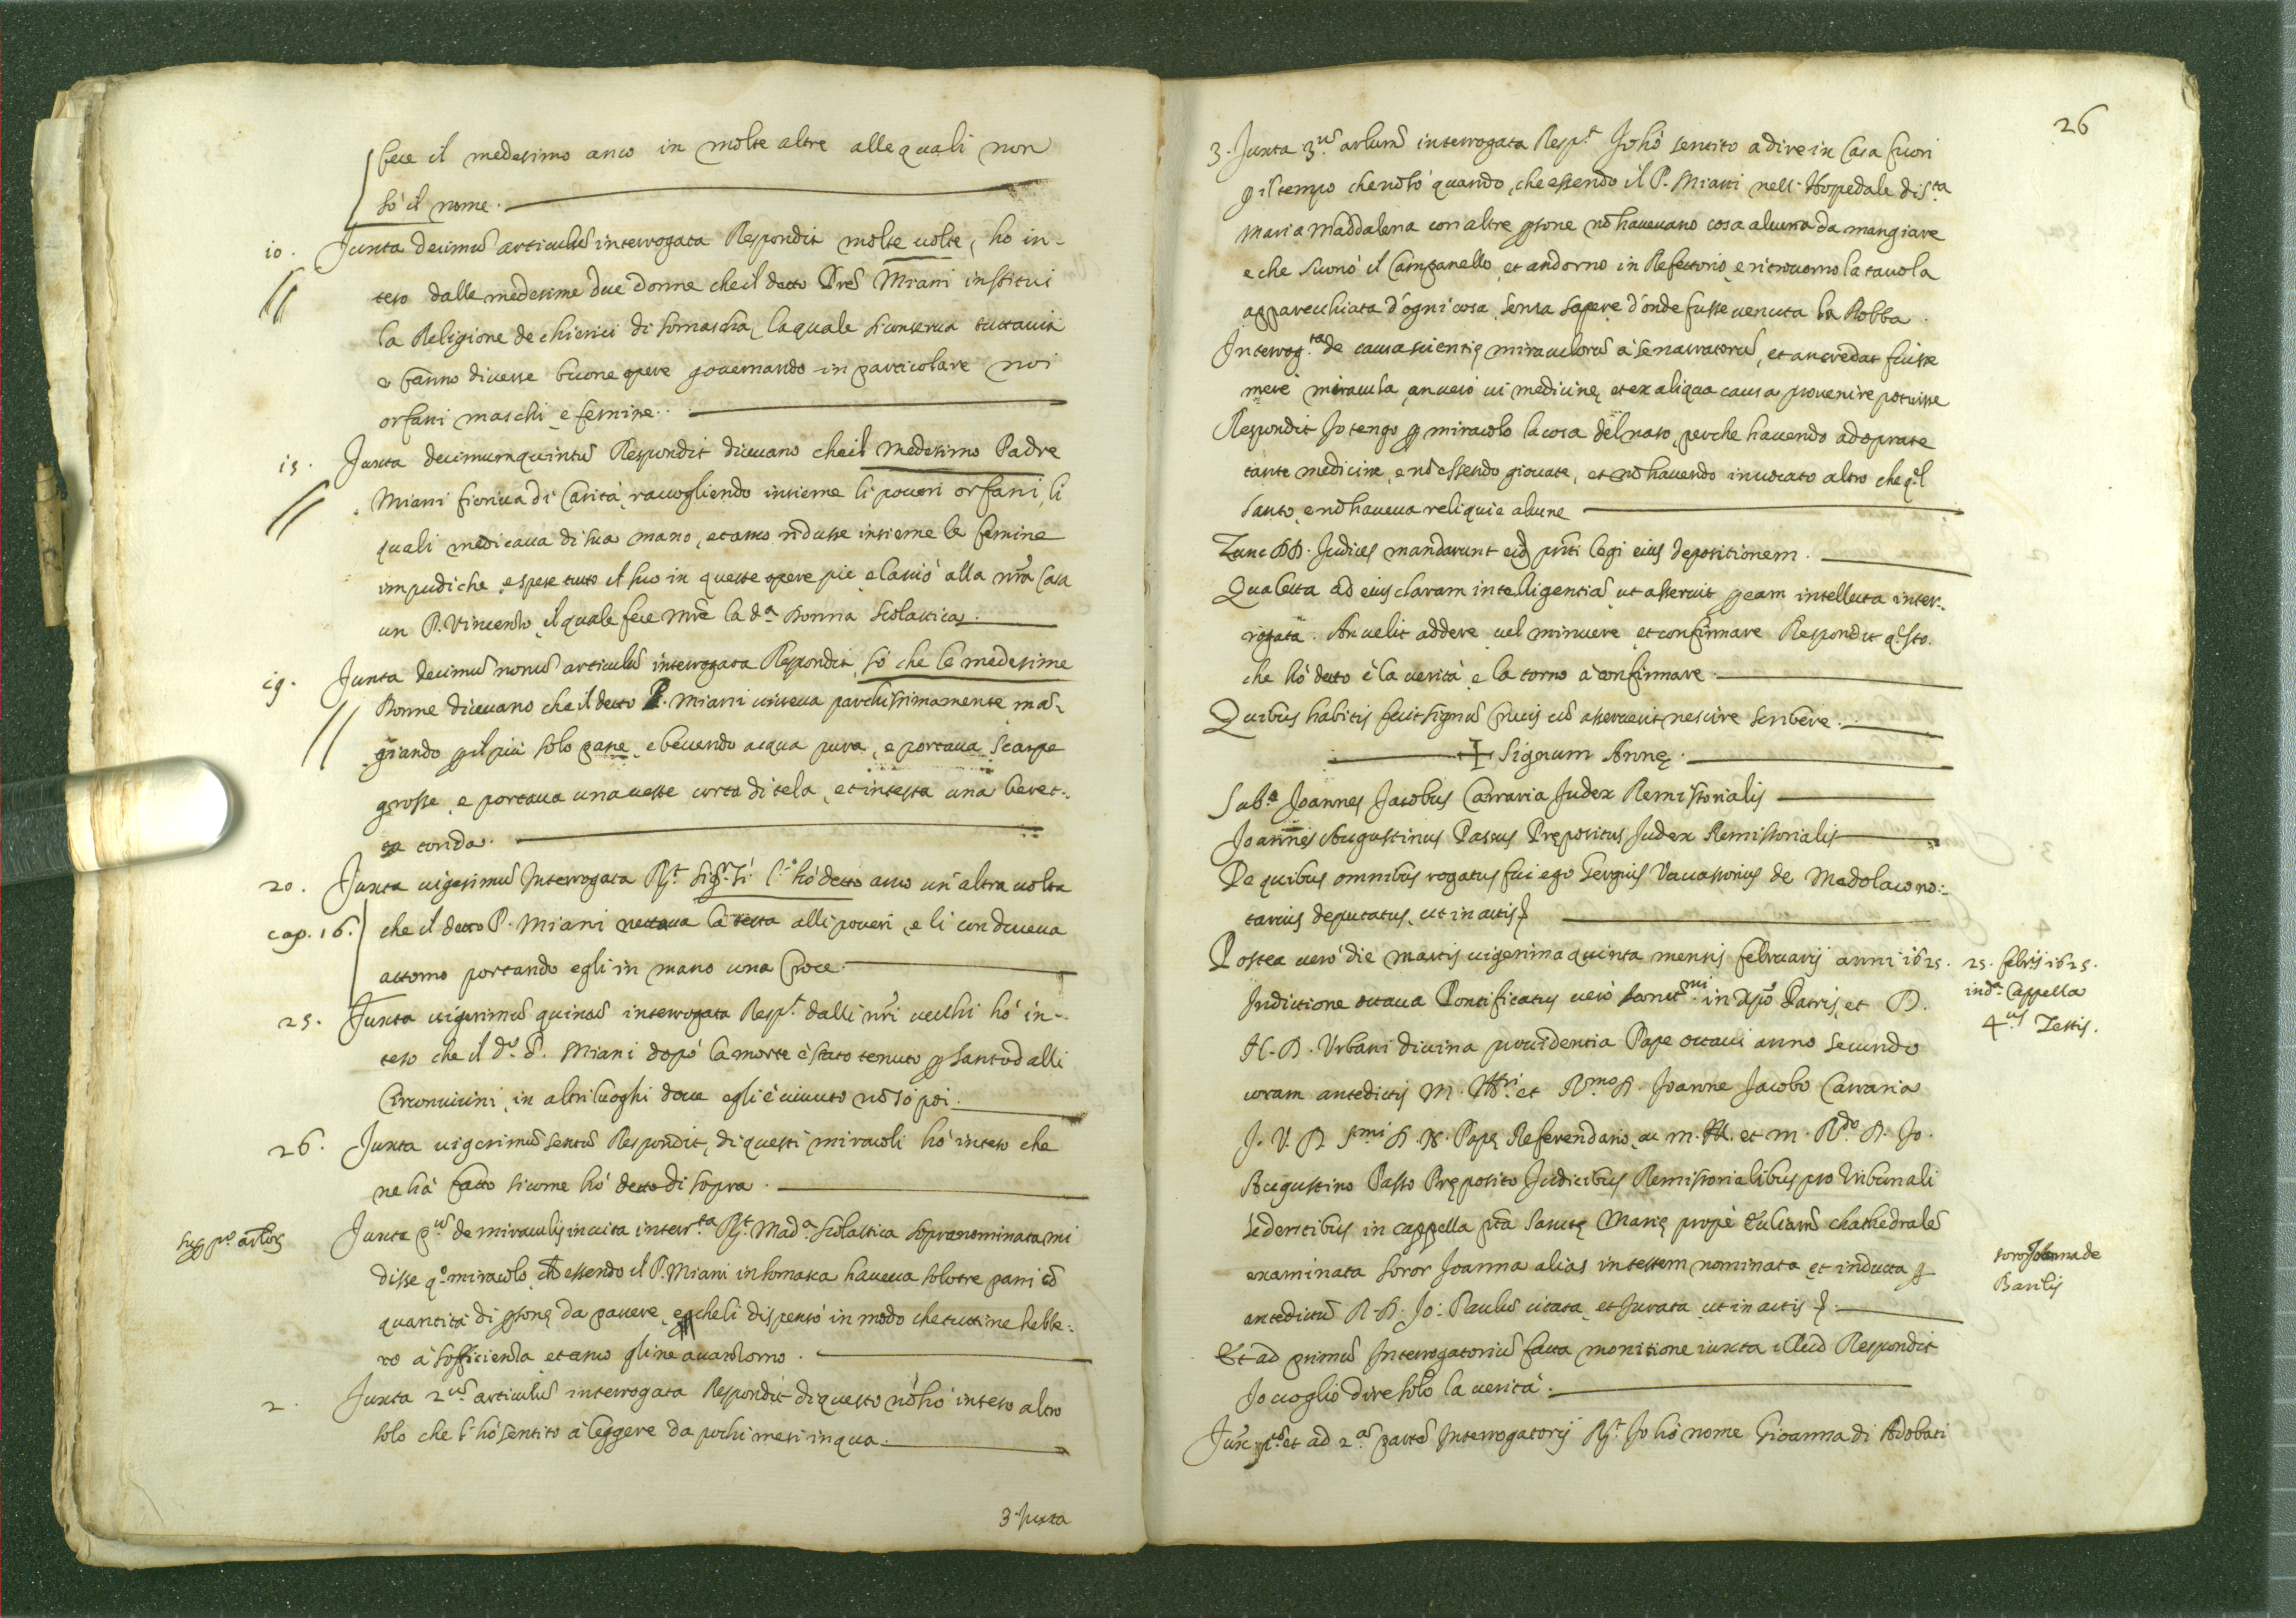 fece il medesimo anco in molte altre alle quali non
sò il nome.
10. Juxta decimũ articulũ interrogata Respondit molte uolte, ho in-
teso dalle medesime due donne che il detto Pre Miani institui
la Religione de chierici di somascha, la quale si conserua tuttauia
e fanno diuerse buone opere gouernando in particolare noi
orfani maschi, e femine.
15. Juxta decimumquintũ Respondit diceuano che il medesimo Padre
Miani fioriua di Carità, raccogliendo insieme li poueri orfani, li
quali medicaua di sua mano, et anco ridusse insieme le femine
impudiche, e spese tutto il suo in queste opere pie, e lassiò alla nrã Casa
un P. Vincenzo, il quale fece mrẽ la dª Donna Scolastica.
19. Juxta decimũ nonũ articulũ interrogata Respondit, sò che le medesime
Donne diceuano che il detto P. Miani uiueua parchissimamente mã-
giando p il più solo pane, e beuendo acqua pura, e portaua scarpe
grosse, e portaua una ueste corta di tela, et in testa una beret-
ta tonda.
20. Juxta uigesimũ Interrogata Rt. Sigr. Si l'hò detto anco un'altra uolta
cap. 16. che il detto P. Miani nettaua la testa alli poueri, e li conduceua
attorno portando egli in mano una Croce.
25. Juxta uigesimũ quintũ interrogata Respt. dalli nrĩ uecchi hò in-
teso che il do. P. Miani dopò la morte è stato tenuto p santo dalli
Circonuicini, in altri luoghi doue egli è uiuuto nõ sò poi.
26. Juxta uigesimũ sextũ Respondit, di questi miracoli hò inteso che
ne hà fatto si come hò detto di sopra.
sup po artlos
Juxta pũ de miraculis in uita interrta Rt. Madª Scolastica sopranominata mi
disse qo miracolo, che essendo il P. Miani in somasca haueua solo tre pani cõ
quantità di psone da pauere, e che li dispensò in modo che tutti ne hebbe-
ro à sofficienza et anco gli ne auanzorno.
2. Juxta 2ũ articulũ interrogata Respondit di questo nõ hò inteso altro
solo che l'hò sentito à leggere da pochi mesi in qua.
3. Juxta
26
3. Juxta 3ũ arlum interrogata Respt. Jo hò sentito a dire in Casa fuori
p il tempo che nõ sò quando, che essendo il P. Miani nell'Hospedale di Sta
Maria Maddalena con altre psone nõ haueuano cosa alcuna da mangiare
e che suonò il Campanello, et andorno in Refettorio, e ritrouorno la tauola
apparecchiata d'ogni cosa, senza sapere d'onde fusse uenuta la Robba.
Interrogta de causa scientię miraculorũ à se narratorũ, et an credat fuisse
merè miracula, an uerò ui medicinę, et ex aliqua causa prouenire potuisse
Respondit Jo tengo p miracolo la cosa del naso, perche hauendo adoprate
tante medicine, e nõ essendo giouate, et nõ hauendo inuocato altro che ql
Santo, e nõ haueua reliquie alcune
Tunc DD. Judices mandarunt eid prñti legi eius depositionem.
Qua lecta ad eius claram intelligentiã, ut asseruit p eam intellecta inter-
rogata. An uelit addere uel minuere, et confirmare Respondit qsto.
che hò detto è la uerità, e la torno à confirmare.
Quibus habitis fecit signũ Crucis cũ asseruerit nescire scribere.
+ Signum Annę.
Subª Joannes Jacobus Carraria Judex Remissorialis
Joannes Augustinus Passus Prępositus Judex Remissorialis
De quibus omnibus rogatus fui ego Sergius Vauassorius de Medolaco no-
tarius deputatus, ut in actis
Postea uerò die martis uigesima quinta mensis februarij anni 1625.
25. febrij 1625.
indª Cappella
4us Testis.
Indictione octaua Pontificatus uerò Sanctmi. in Xpõ Patris, et D.
N. D. Urbani diuina prouidentia Pape octaui anno secundo
coram antedictis M. Illri et Rmo D. Joanne Jacobo Carraria
J. V. D. Smi D. N. Papę Referendario, ac m. Ill. et m. Rdo D. Jo.
Augustino Passo Pręposito Judicibus Remissorialibus pro tribunali
sedentibus in cappella pta Sanctę Marię propè Ecclesiam chathedralẽ
examinata soror Joanna alias in testem nominata et inducta p
soror Joanna de
antedictũ R. D. Jo: Paulũ citata, et Jurata, ut in actis.
Et ad primũ Interrogatoriũ facta monitione iuxta illud Respondit
Jo uoglio dire solo la uerità.
et ad 2ã partẽ Interrogatorij Rt. Jo hò nome Gioanna di Adobati